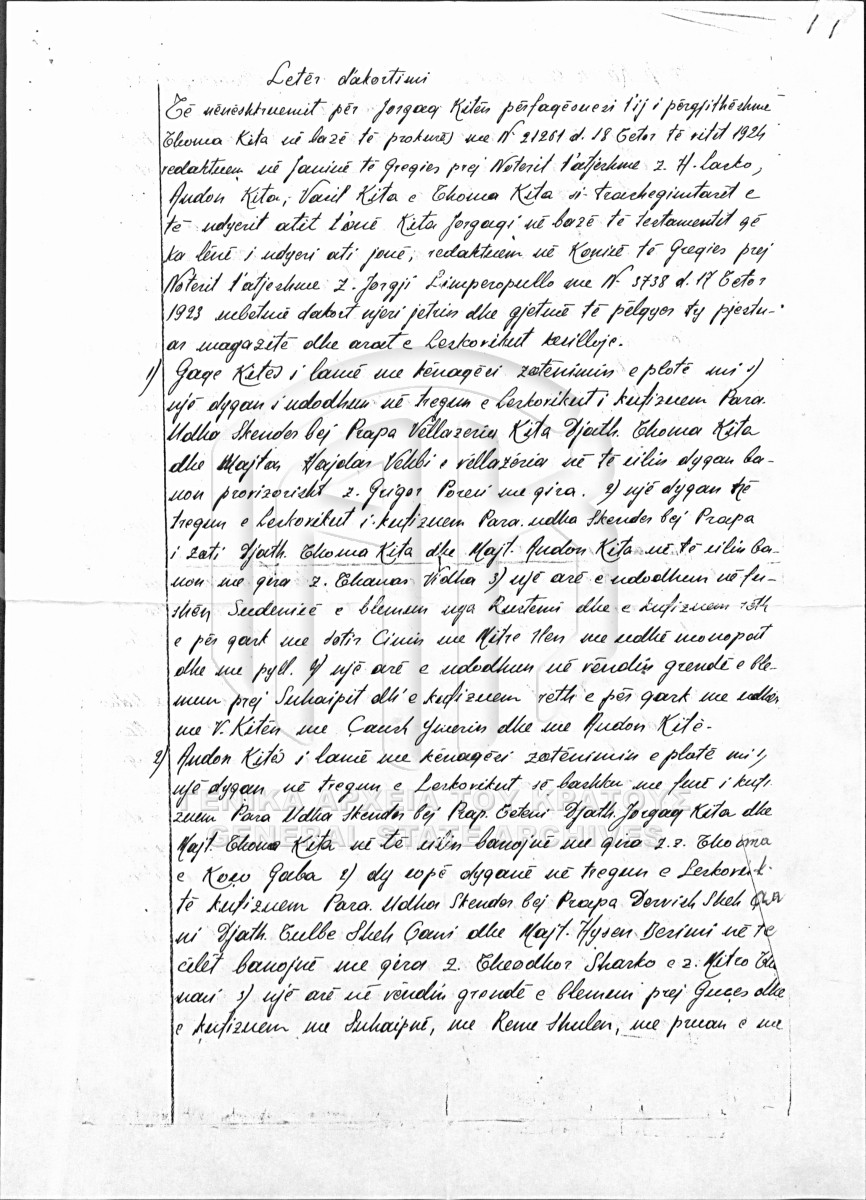 11
Letër dakortimi
Të nënëshkruemit për Jorgaq Kitën përfaqësonjësi t'ij i përgjithëshme
Thoma Kita në bazë të prokurës me Nº 21261 d. 18 Tetor të vitit 1924
redaktuem në Janinë të Greqies prej Noterit t'atjeshme z. H. Lasko,
Andon Kita, Vasil Kita e Thoma Kita si trashegimtarët e
të ndyerit atit t'onë Kita Jorgaqi në bazë të testamentit që
ka lënë i ndyeri ati jonë, redaktuem në Konizë të Greqies prej
Noterit t'atjeshme z. Jorgji Limperopullo me Nº 3738 d. 17 Tetor
1923 mbetmë dakort njeri jetrin dhe gjetmë të pëlqyer ty pjestu-
ar magazitë dhe arat e Leskovikut kësilloje.
1) Gaqe Kitës i lamë me kënaqësi zotënimin e plotë mi 1)
një dygan i ndodhun në tregun e Leskovikut i kufizuem Para.
Udha Skender bej Prapa Vëllazëria Kita Djath. Thoma Kita
dhe Majtas Hajdar Vehbi e vëllazëria në të cilin dygan ba-
non provizorisht z. Grigor Poreni me qira. 2) një dygan në
tregun e Leskovikut i kufizuem Para. udha Skender bej Prapa
i zoti Djath. Thoma Kita dhe Majt. Andon Kita në të cilin ba-
non me qira z. Thanas Vidha 3) një arë e ndodhun në fu-
shën Sudenicë e blemun nga Rustemi dhe e kufizuem reth
e për qark me Sotir Cinin me Mitre Ilen me udhë monopat
dhe me pyll. 4) një arë e ndodhun në vëndin grendë e ble-
mun prej Suhaipit dh'e kufizuem reth e për qark me udhën
me V. Kitën me Çaush Ymerin dhe me Andon Kitë.
2) Andon Kitës i lamë me kënaqësi zotënimin e plotë mi 1)
një dygan në tregun e Leskovikut, së bashku me furë i kufi-
zuem Para Udha Skender bej Prap. Teteni Djath. Jorgaq Kita dhe
Majt. Thoma Kita në të cilin banojnë me qira z.z. Thoma
e Koço Gaba 2) dy copë dyganë në tregun e Leskovik-
të kufizuem Para. Udha Skender bej Prapa Dervish Sheh Ça
ni Djath. Tulbe Sheh Çani dhe Majt. Hysen Berimi në të
cilët banojnë me qira z. Theodhor Sharko e z. Mitro Tha
nasi 3) një arë në vëndin grendë e blemeni prej Guçes dhe
e kufizuem me Suhaipnë, me Reme Shulen, me pruan e me
ΓΕΝΙΚΑ ΑΡΧΕΙΑ ΤΟΥ ΚΡΑΤΟΥΣ
GENERAL STATE ARCHIVES